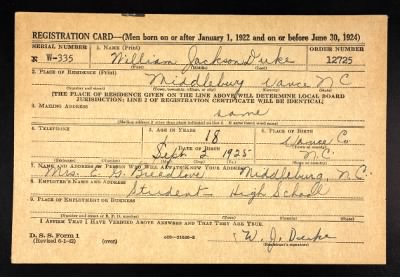 REGISTRATION CARD—(Men born on or after January 1, 1922 and on or before June 30, 1924)
SERIAL NUMBER 1. NAME (Print) ORDER NUMBER
N W-335 William Jackson Duke 12725
(First) (Middle) (Last)
2. PLACE OF RESIDENCE (Print)
Middleburg Vance N.C.
(Number and street) (Town, township, village, or city) (County) (State)
[THE PLACE OF RESIDENCE GIVEN ON THE LINE ABOVE WILL DETERMINE LOCAL BOARD
JURISDICTION; LINE 2 OF REGISTRATION CERTIFICATE WILL BE IDENTICAL]
3. MAILING ADDRESS
same
[Mailing address if other than place indicated on line 2. If same insert word same]
4. TELEPHONE 5. AGE IN YEARS 6. PLACE OF BIRTH
18 Vance Co.
DATE OF BIRTH (Town or county)
Sept 2 1925 N.C.
(Exchange) (Number) (Mo.) (Day) (Yr.) (State or country)
7. NAME AND ADDRESS OF PERSON WHO WILL ALWAYS KNOW YOUR ADDRESS
Mrs. E. G. Breedlove Middleburg, N.C.
8. EMPLOYER'S NAME AND ADDRESS
Student High School
9. PLACE OF EMPLOYMENT OR BUSINESS
(Number and street or R. F. D. number) (Town) (County) (State)
I AFFIRM THAT I HAVE VERIFIED ABOVE ANSWERS AND THAT THEY ARE TRUE.
D. S. S. Form 1
(Revised 6-1-42) (over) W. J. Duke
(Registrant's signature)